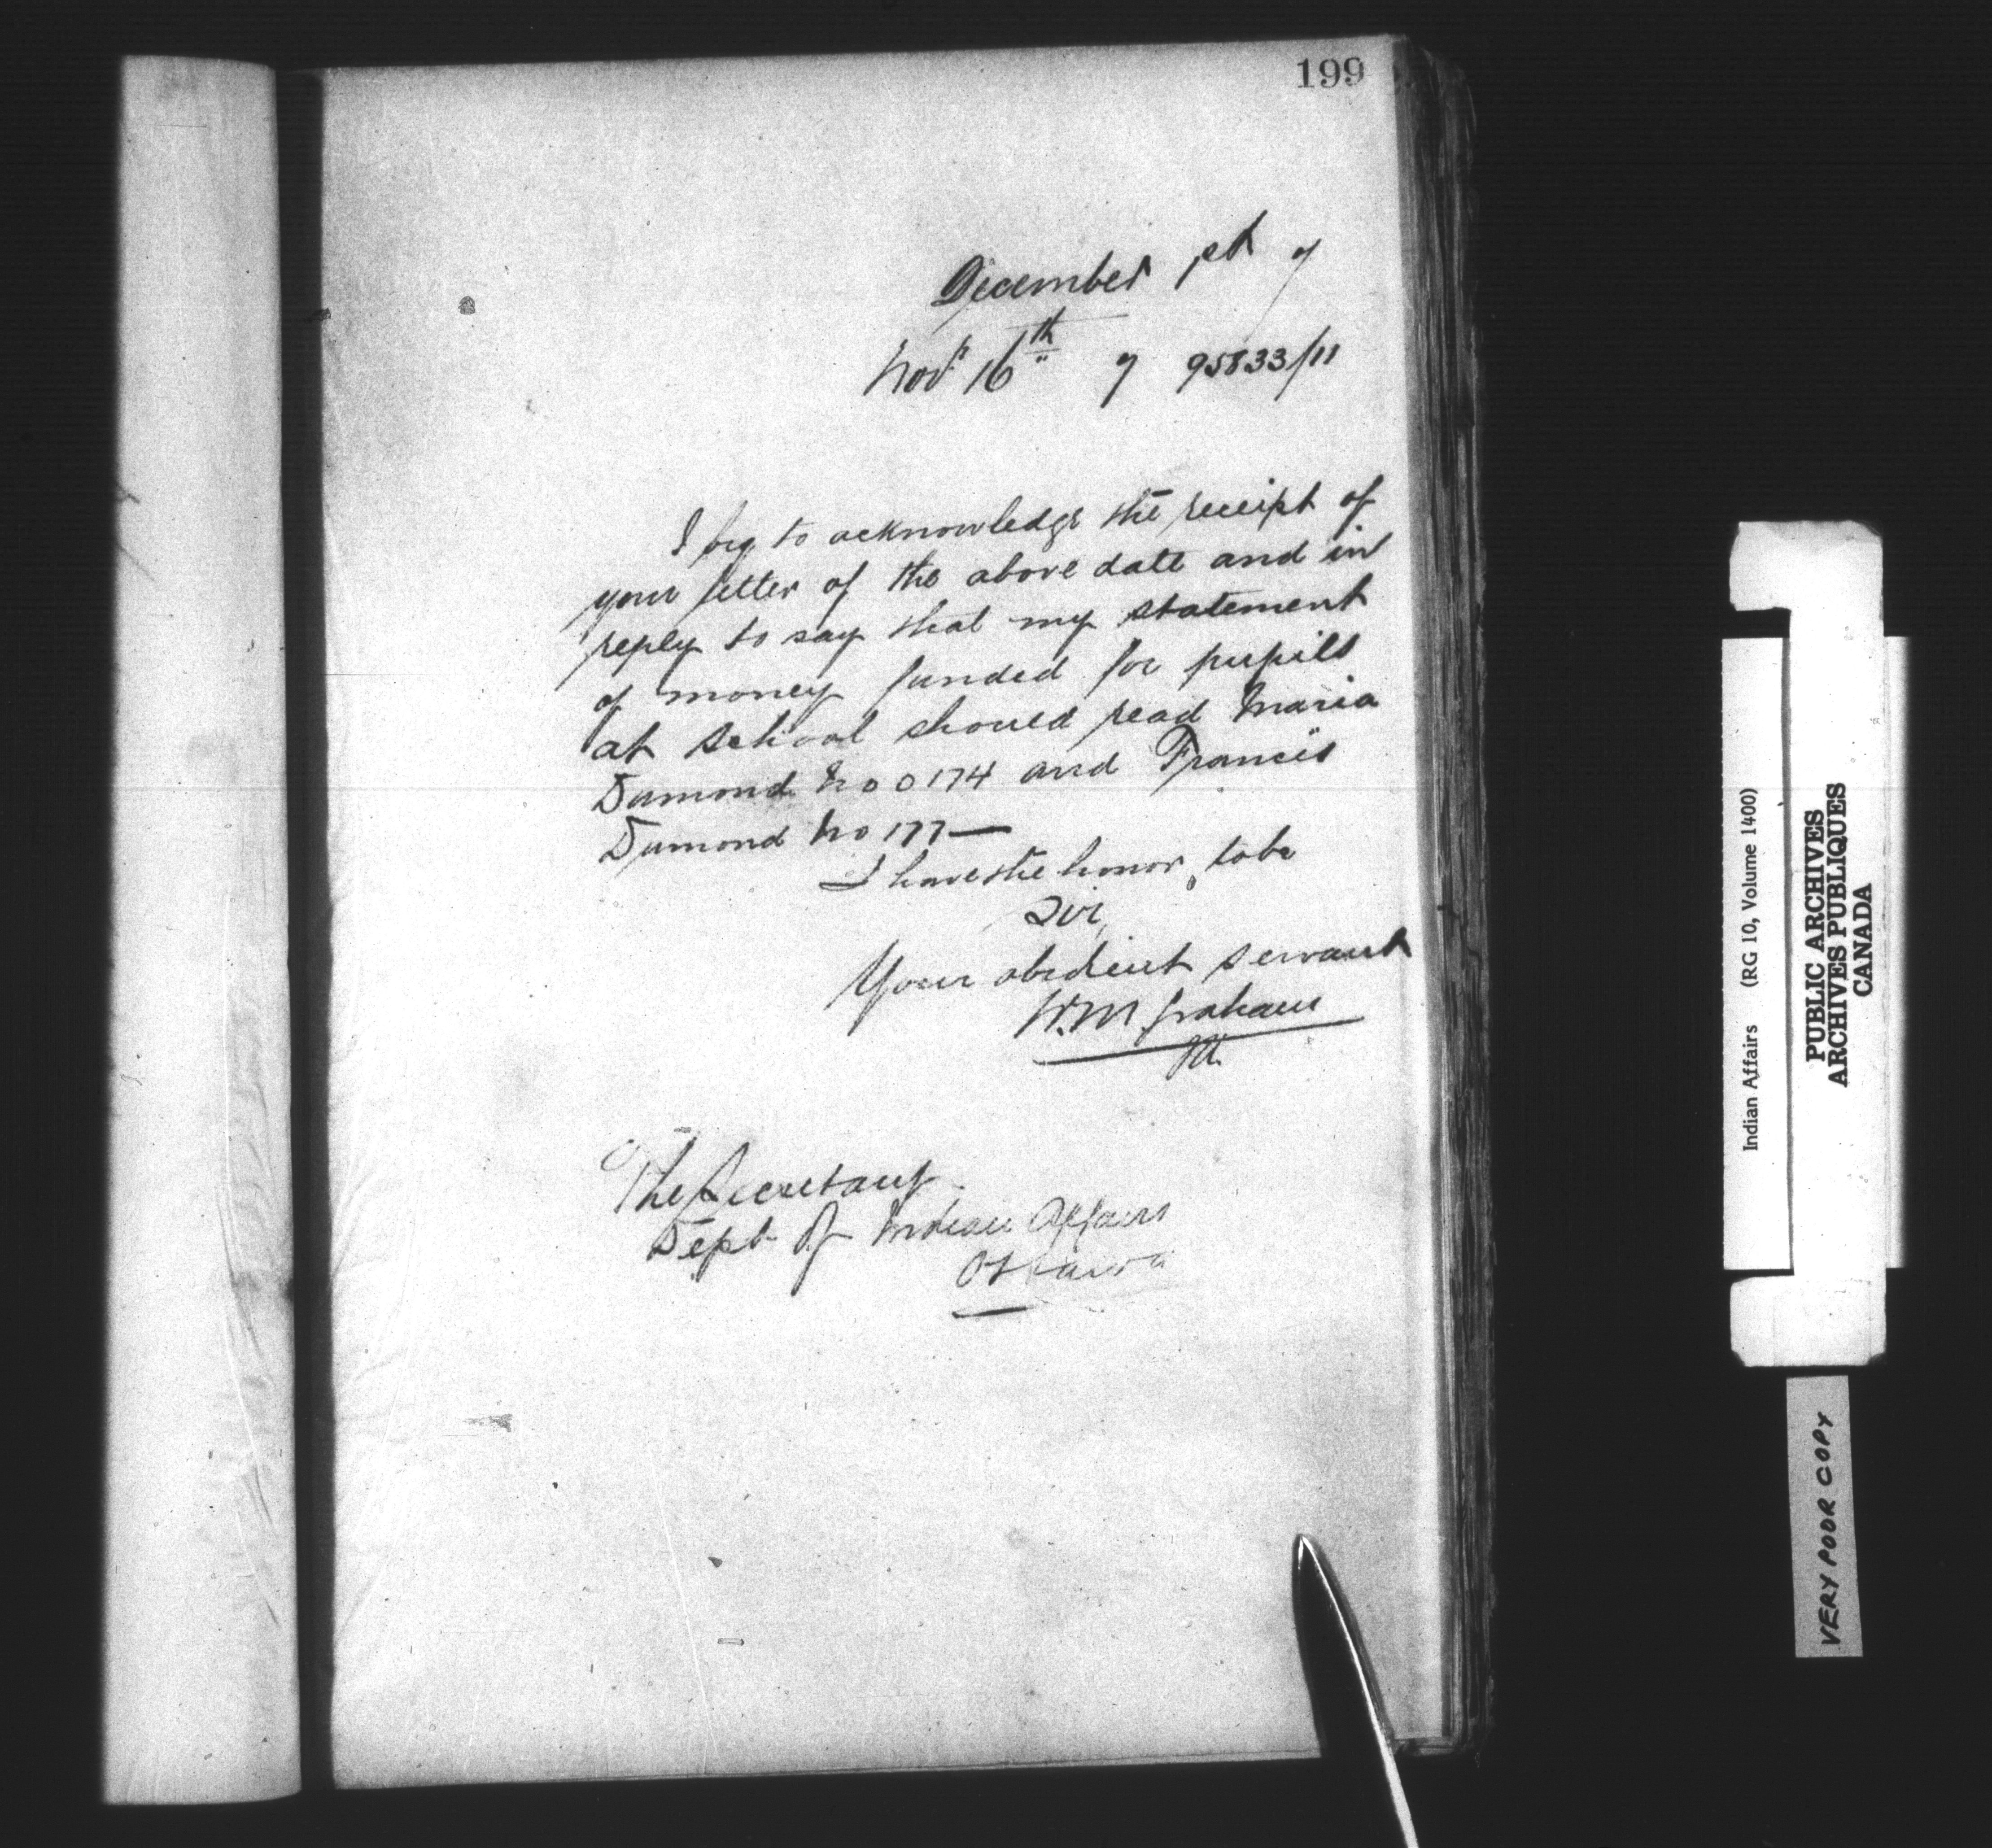 199
December 1st 7
Nov 16th 7 95833/11
I beg to acknowledge the receipt of
your letter of the above date and in
reply to say that my statement
of money funded for pupils
at school should read Maria
Dumond No 0174 and Francis
Dumond No 177—
I have the honor to be
Sir,
Your obedient servant
W.M. Graham
The Secretary
Dept of Indian Affairs
Ottawa
Indian Affairs (RG 10, Volume 1400)
PUBLIC ARCHIVES
ARCHIVES PUBLIQUES
CANADA
VERY POOR COPY